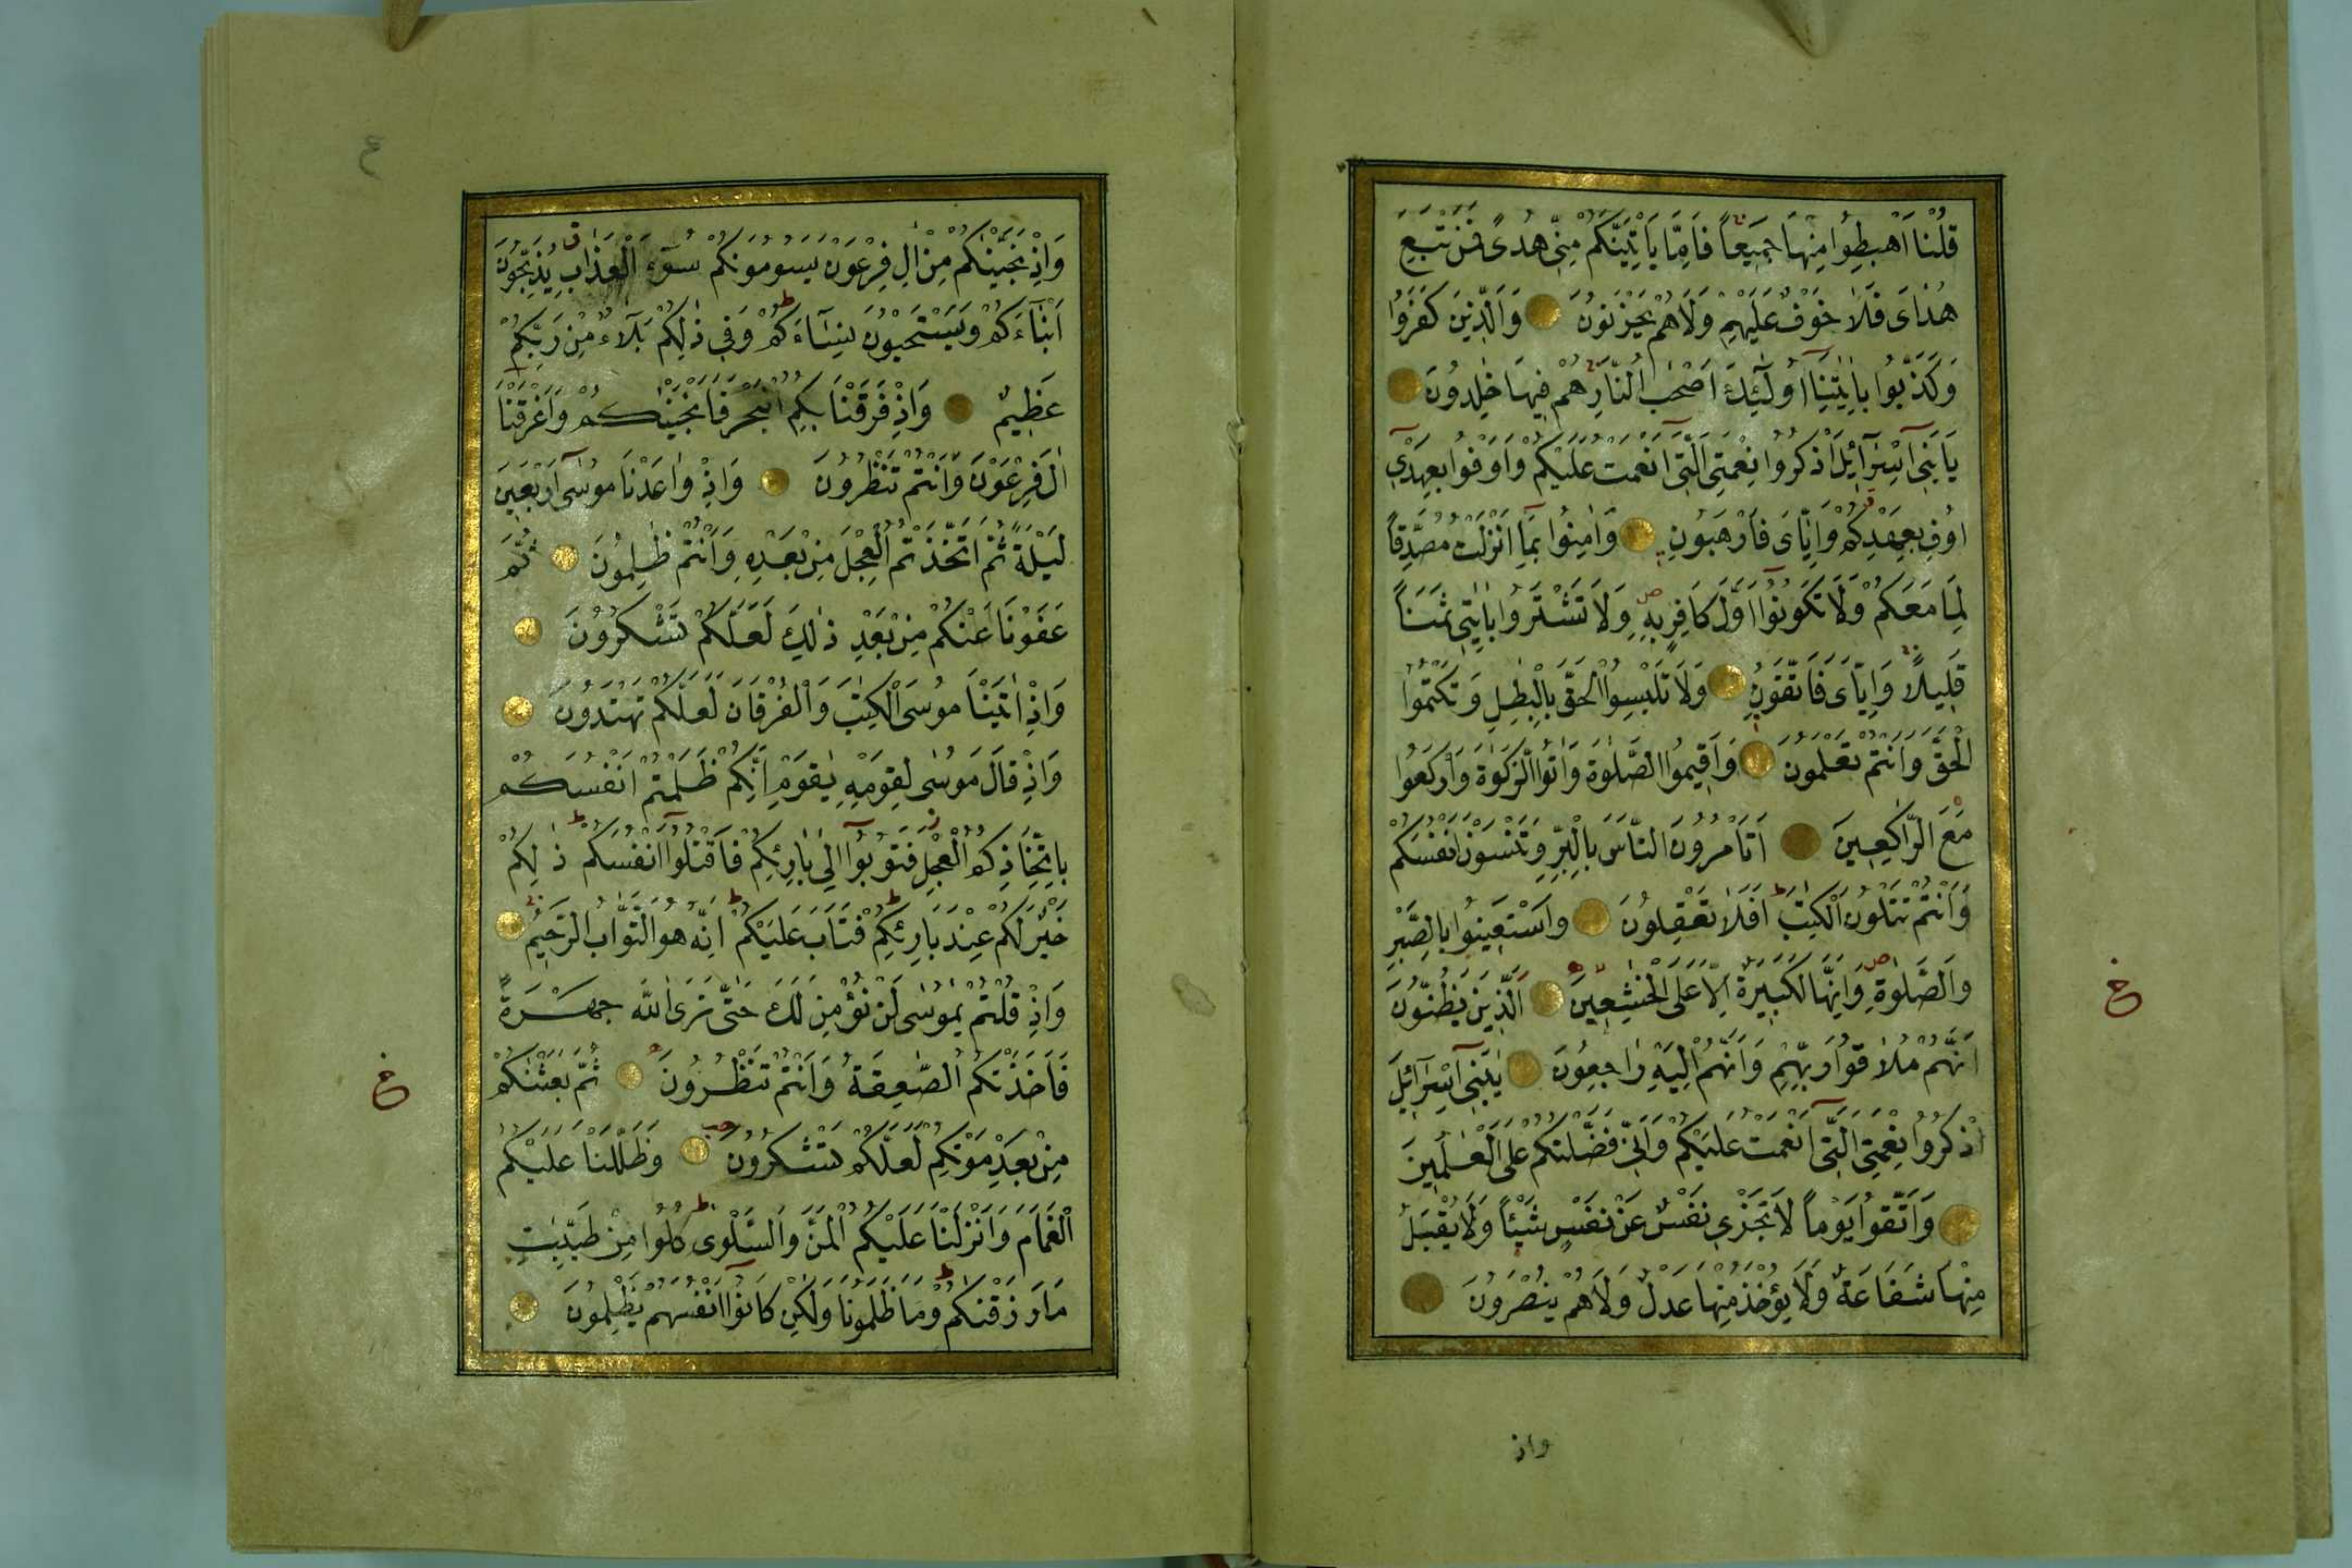 قُلْنَا اهْبِطُوا مِنْهَا جَمِيعًا فَاِمَّا يَاْتِيَنَّكُمْ مِنِّي هُدًى فَمَنْ تَبِعَ
هُدَايَ فَلَا خَوْفٌ عَلَيْهِمْ وَلَا هُمْ يَحْزَنُونَ وَالَّذِينَ كَفَرُوا
وَكَذَّبُوا بِاٰيٰتِنَا اُولٰٓئِكَ اَصْحٰبُ النَّارِ هُمْ فِيهَا خٰلِدُونَ
يَابَنِي اِسْرَآئِلَ اذْكُرُوا نِعْمَتِيَ الَّتِي اَنْعَمْتُ عَلَيْكُمْ وَاَوْفُوا بِعَهْدِي
اُوفِ بِعَهْدِكُمْ وَاِيَّايَ فَارْهَبُونِ وَاٰمِنُوا بِمَا اَنْزَلْتُ مُصَدِّقًا
لِمَا مَعَكُمْ وَلَا تَكُونُوا اَوَّلَ كَافِرٍ بِهِ وَلَا تَشْتَرُوا بِاٰيٰتِي ثَمَنًا
قَلِيلًا وَاِيَّايَ فَاتَّقُونِ وَلَا تَلْبِسُوا الْحَقَّ بِالْبٰطِلِ وَتَكْتُمُوا
الْحَقَّ وَاَنْتُمْ تَعْلَمُونَ وَاَقِيمُوا الصَّلٰوةَ وَاٰتُوا الزَّكٰوةَ وَارْكَعُوا
مَعَ الرَّاكِعِينَ اَتَاْمُرُونَ النَّاسَ بِالْبِرِّ وَتَنْسَوْنَ اَنْفُسَكُمْ
وَاَنْتُمْ تَتْلُونَ الْكِتٰبَ اَفَلَا تَعْقِلُونَ وَاسْتَعِينُوا بِالصَّبْرِ
وَالصَّلٰوةِ وَاِنَّهَا لَكَبِيرَةٌ اِلَّا عَلَى الْخٰشِعِينَ الَّذِينَ يَظُنُّونَ
اَنَّهُمْ مُلَاقُوا رَبِّهِمْ وَاَنَّهُمْ اِلَيْهِ رَاجِعُونَ يٰبَنِي اِسْرَآئِلَ
اذْكُرُوا نِعْمَتِيَ الَّتِي اَنْعَمْتُ عَلَيْكُمْ وَاَنِّي فَضَّلْتُكُمْ عَلَى الْعٰلَمِينَ
وَاتَّقُوا يَوْمًا لَا تَجْزِي نَفْسٌ عَنْ نَفْسٍ شَيْئًا وَلَا يُقْبَلُ
مِنْهَا شَفَاعَةٌ وَلَا يُؤْخَذُ مِنْهَا عَدْلٌ وَلَا هُمْ يُنْصَرُونَ
واذ
ع
وَاِذْ نَجَّيْنٰكُمْ مِنْ اٰلِ فِرْعَوْنَ يَسُومُونَكُمْ سُوٓءَ الْعَذَابِ يُذَبِّحُونَ
اَبْنَآءَكُمْ وَيَسْتَحْيُونَ نِسَآءَكُمْ وَفِي ذٰلِكُمْ بَلَآءٌ مِنْ رَبِّكُمْ
عَظِيمٌ وَاِذْ فَرَقْنَا بِكُمُ الْبَحْرَ فَاَنْجَيْنٰكُمْ وَاَغْرَقْنَا
اٰلَ فِرْعَوْنَ وَاَنْتُمْ تَنْظُرُونَ وَاِذْ وٰاعَدْنَا مُوسٰى اَرْبَعِينَ
لَيْلَةً ثُمَّ اتَّخَذْتُمُ الْعِجْلَ مِنْ بَعْدِهِ وَاَنْتُمْ ظٰلِمُونَ ثُمَّ
عَفَوْنَا عَنْكُمْ مِنْ بَعْدِ ذٰلِكَ لَعَلَّكُمْ تَشْكُرُونَ
وَاِذْ اٰتَيْنَا مُوسَى الْكِتٰبَ وَالْفُرْقَانَ لَعَلَّكُمْ تَهْتَدُونَ
وَاِذْ قَالَ مُوسٰى لِقَوْمِهِ يٰقَوْمِ اِنَّكُمْ ظَلَمْتُمْ اَنْفُسَكُمْ
بِاتِّخَاذِكُمُ الْعِجْلَ فَتُوبُوا اِلٰى بَارِئِكُمْ فَاقْتُلُوا اَنْفُسَكُمْ ذٰلِكُمْ
خَيْرٌ لَكُمْ عِنْدَ بَارِئِكُمْ فَتَابَ عَلَيْكُمْ اِنَّهُ هُوَ التَّوَّابُ الرَّحِيمُ
وَاِذْ قُلْتُمْ يٰمُوسٰى لَنْ نُؤْمِنَ لَكَ حَتّٰى نَرَى اللّٰهَ جَهْرَةً
فَاَخَذَتْكُمُ الصّٰعِقَةُ وَاَنْتُمْ تَنْظُرُونَ ثُمَّ بَعَثْنٰكُمْ
مِنْ بَعْدِ مَوْتِكُمْ لَعَلَّكُمْ تَشْكُرُونَ وَظَلَّلْنَا عَلَيْكُمُ
الْغَمَامَ وَاَنْزَلْنَا عَلَيْكُمُ الْمَنَّ وَالسَّلْوٰى كُلُوا مِنْ طَيِّبٰتِ
مَا رَزَقْنٰكُمْ وَمَا ظَلَمُونَا وَلٰكِنْ كَانُوا اَنْفُسَهُمْ يَظْلِمُونَ